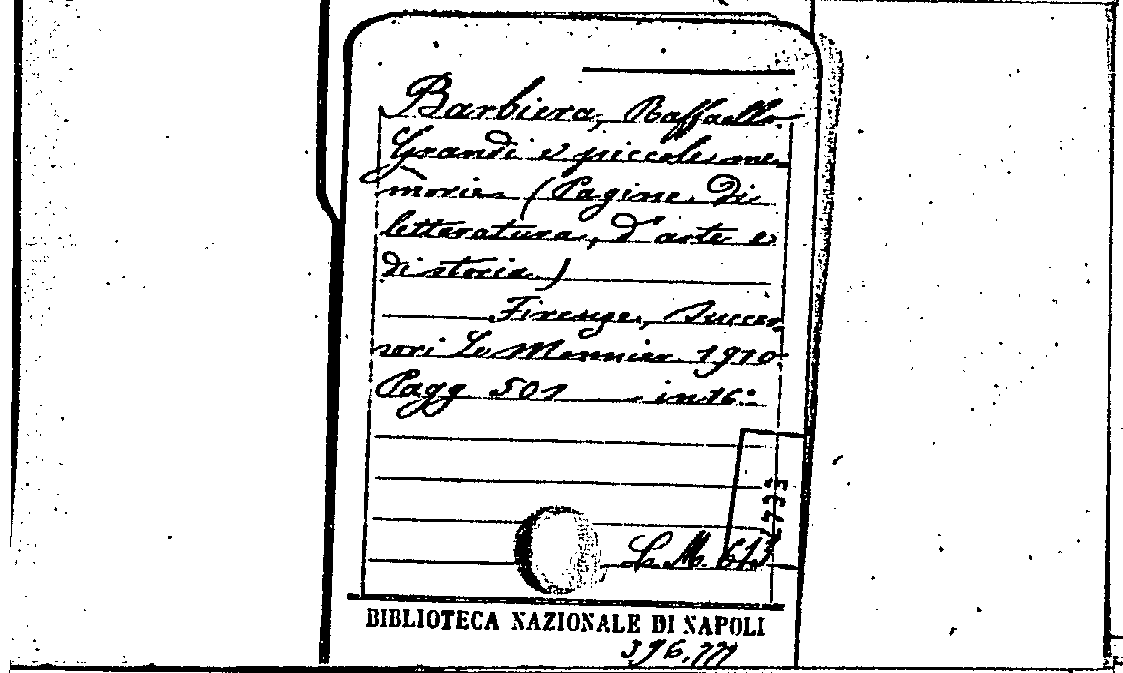 Barbiera, Raffaello.
Grandi e piccole me-
morie (Pagine di
letteratura, d'arte e
di storia)
Firenze, Succes-
sori Le Monnier 1910
Pagg 501 in 16º
L. M. 613
BIBLIOTECA NAZIONALE DI NAPOLI
396.777